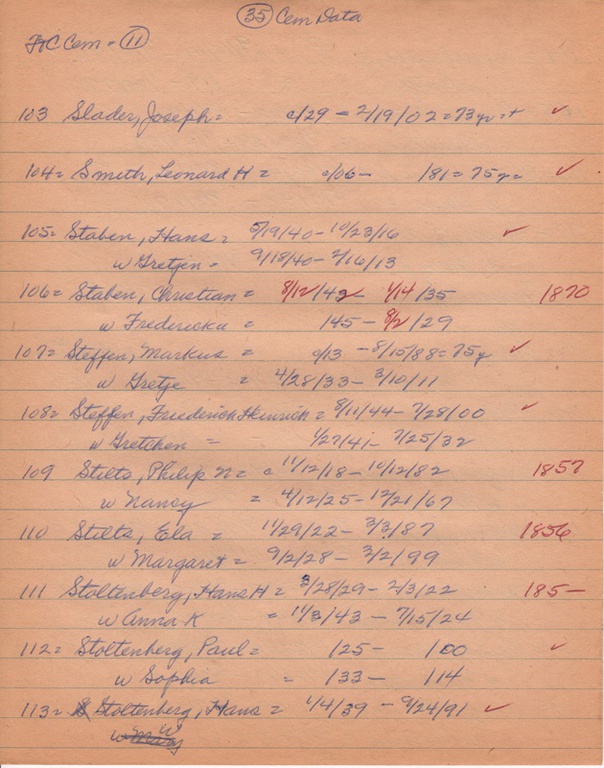 35 Cem Data
Cem = 11
103 Slader, Joseph = c/29 = 2/19/02 = 73yr = + ✓
104 = Smith, Leonard H = c/06 - /81 = 75y = ✓
105 = Staben, Hans = 5/19/40 - 10/23/16 ✓
w Gretjen = 9/18/40 - 2/16/13
106 = Staben, Christian = 8/12/42 - 1/14/35 1870
w Fredericka = /45 - 8/2/29
107 = Steffen, Markus = c/13 - 8/15/88 = 75y ✓
w Gretje = 4/28/33 - 3/10/11
108 = Steffen, Friederich Heinrich = 8/11/44 - 7/28/00 ✓
w Gretchen = 1/27/41 - 7/25/32
109 Stilts, Philip N = c 11/12/18 - 10/12/82 1857
w Nancy = 4/12/25 - 12/21/67
110 Stilts, Ela = 11/29/22 - 3/3/87 1856
w Margaret = 9/2/28 - 3/2/99
111 Stoltenberg, Hans H = 3/28/29 - 2/3/22 185-
w Anna K = 11/3/43 - 7/15/24
112 = Stoltenberg, Paul = /25 - /00 ✓
w Sophia = /33 - /14
113 = Stoltenberg, Hans = 1/4/39 - 9/24/91 ✓